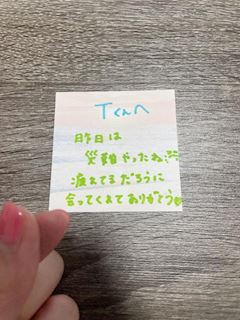 Tくんへ
昨日は
災難やったね💦
疲れてるだろうに
会ってくれてありがとう♥